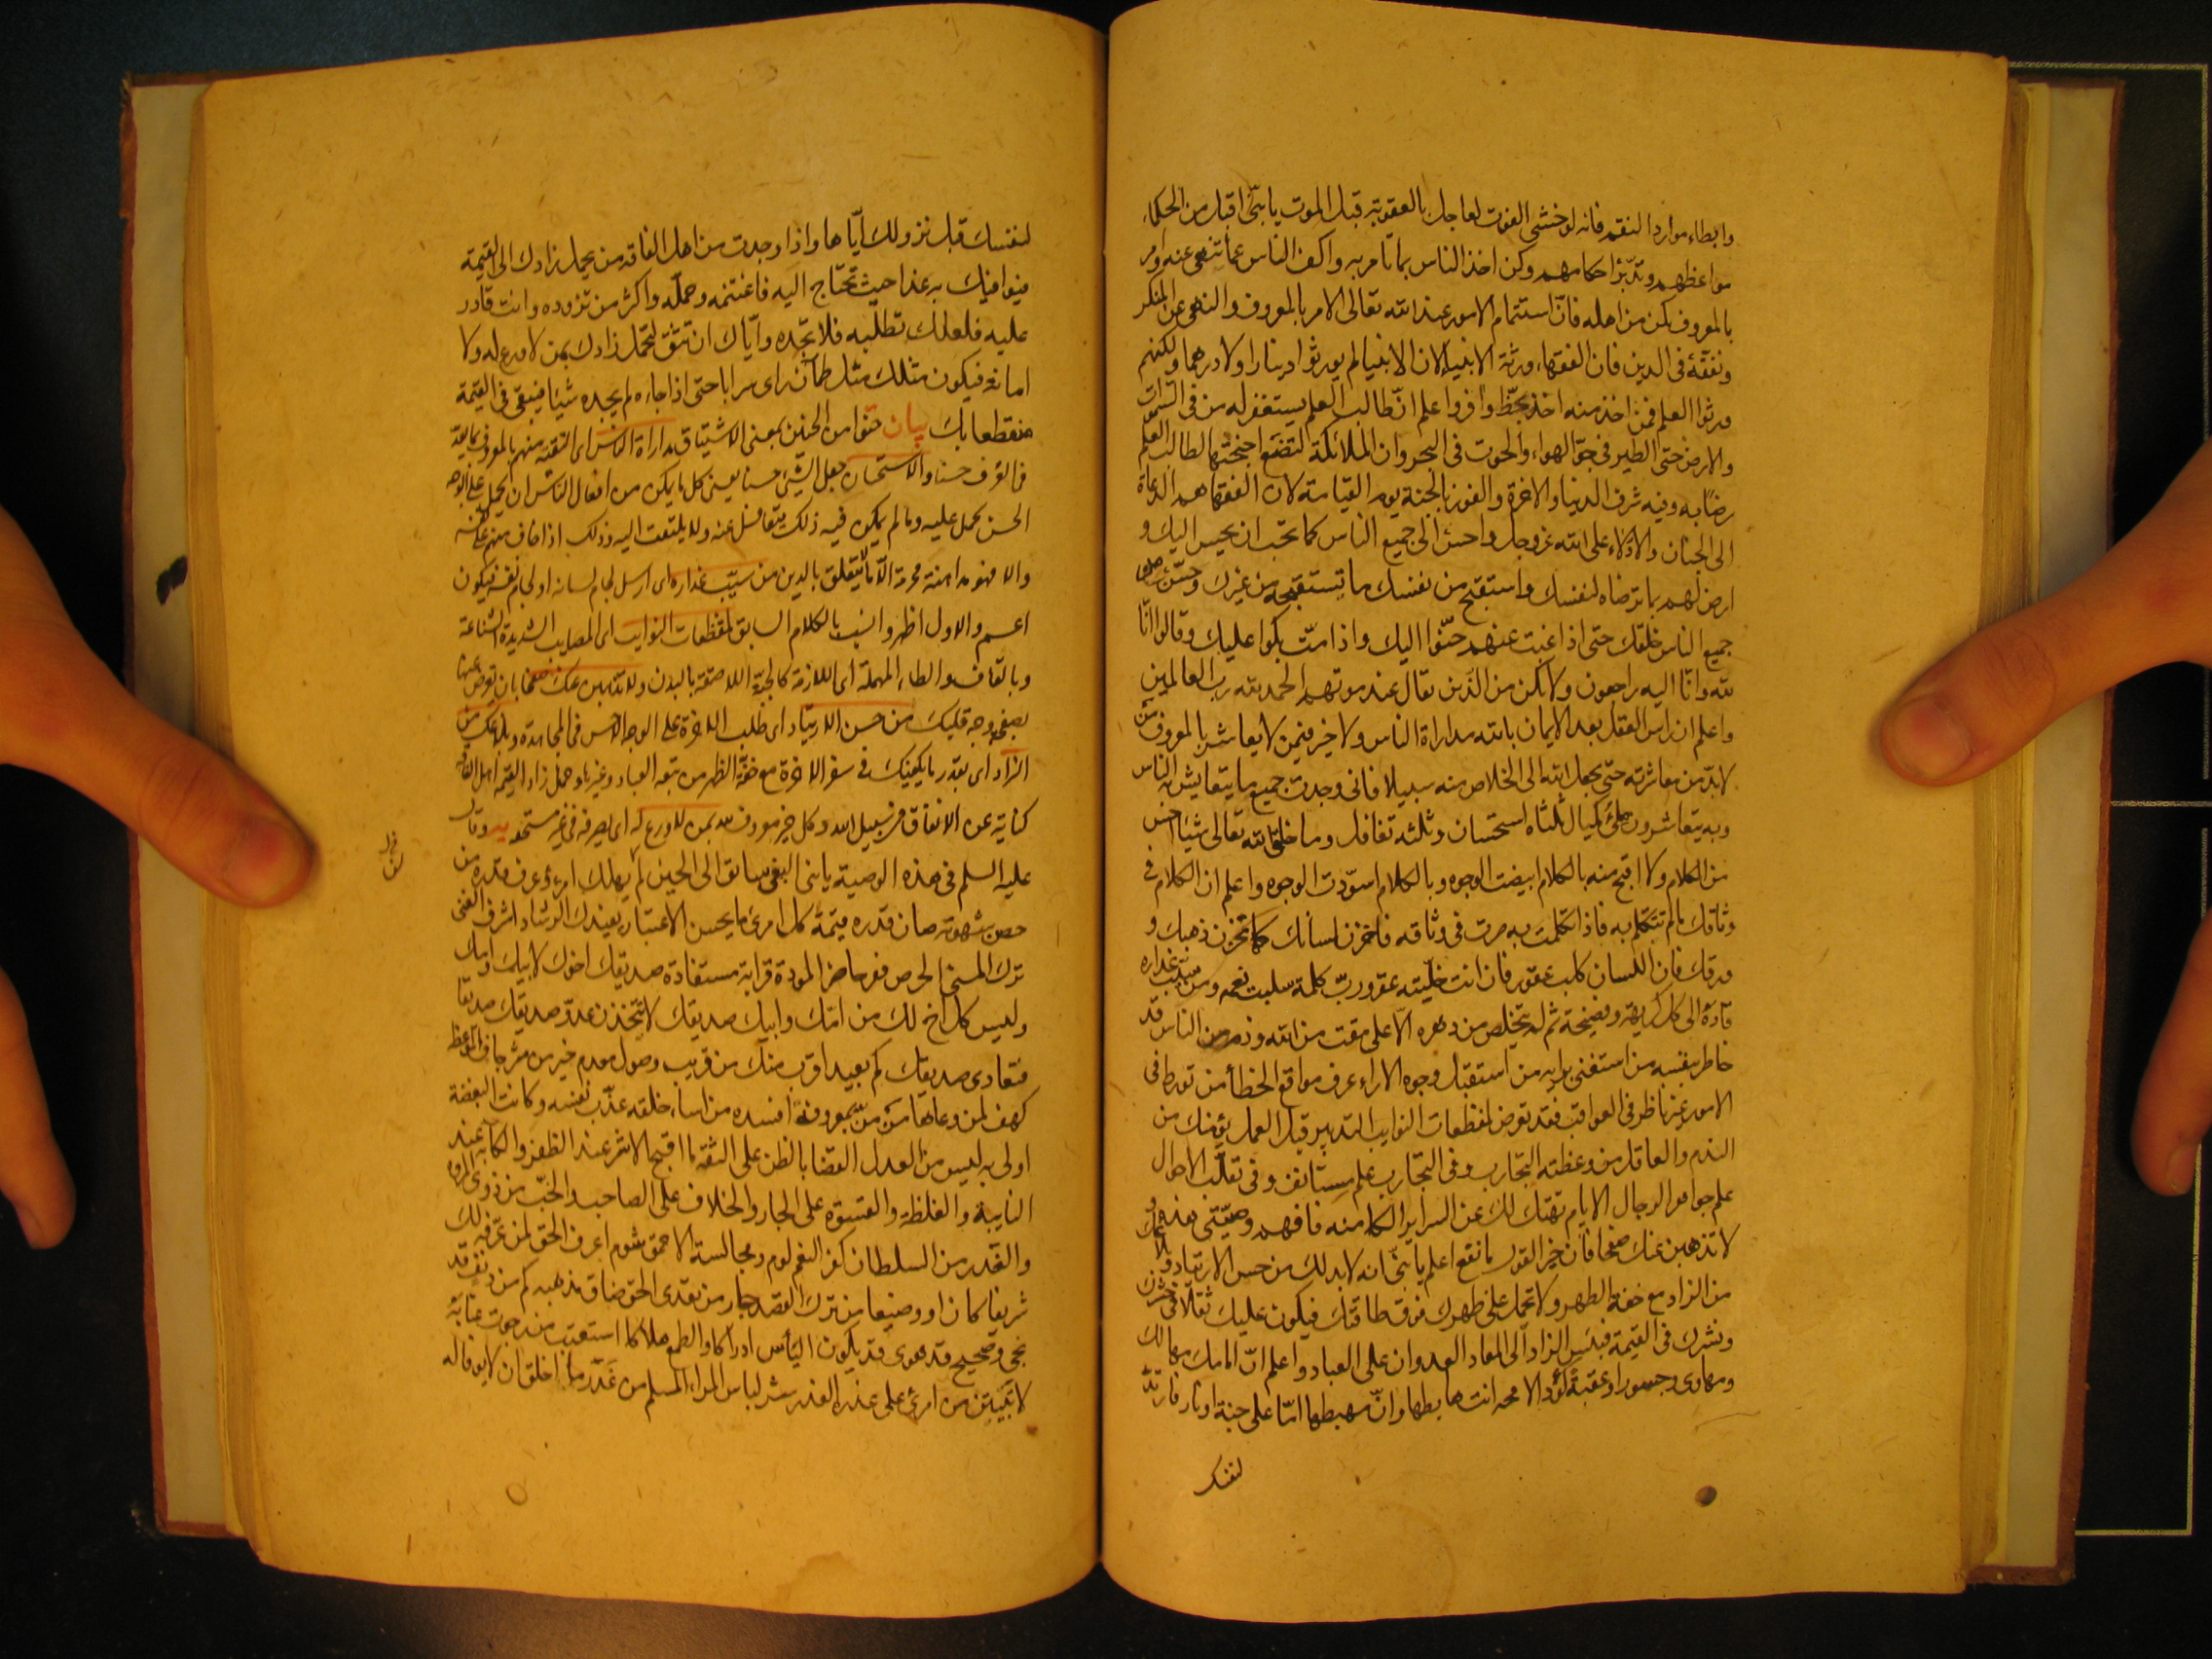 وابطاء موارد النقم فانه لو خشى الفوت لعاجل بالعقوبة قبل الموت يا بنىّ اقبل من الحكماء
مواعظهم وتدبّر احكامهم وكن اخذ الناس بما تامر به واكف الناس عما تنهى عنه وامر
بالمعروف تكن من اهله فانّ استتمام الامور عند الله تعالى الامر بالمعروف والنهى عن المنكر
وتفقّه فى الدين فان الفقهاء ورثة الانبياء لان الانبيا لم يورثوا دينارا ولا درهما ولكنهم
ورثوا العلم فمن اخذ منه اخذ بحظّ وافر واعلم انّ طالب العلم يستغفر له من فى السموات
والارض حتى الطير فى جوّ الهواء والحوت فى البحر وان الملائكة لتضع اجنحتها لطالب العلم
رضًا به وفيه شرف الدنيا والاخرة والفوز بالجنة يوم القيامة لان الفقها هم الدعاة
الى الجنان والادلاء على الله عزوجل واحسن الى جميع الناس كما تحب ان يحسن اليك و
ارض لهم بما ترضاه لنفسك واستقبح من نفسك ما تستقبحه من غيرك وحسّن مع
جميع الناس خلقك حتى اذا غبت عنهم حنّوا اليك واذا متّ بكوا عليك وقالوا انّا
لله وانّا اليه راجعون ولا تكن من الذين يقال عند موتهم الحمد لله رب العالمين
واعلم ان راس العقل بعد الايمان بالله مداراة الناس ولا خير فيمن لا يعاشر بالمعروف من
لابدّ من معاشرته حتى يجعل الله الى الخلاص منه سبيلا فانى وجدت جميع ما يتعايش به الناس
وبه يتعاشرون ملئ مكيال ثلثاه استحسان وثلثه تغافل وما خلق الله تعالى شيئا احسن
من الكلام ولا اقبح منه بالكلام ابيضت الوجوه وبالكلام اسوّدت الوجوه واعلم ان الكلام فى
وثاقك ما لم تتكلم به فاذا تكلمت به صرت فى وثاقه فاخزن لسانك كما تخزن ذهبك و
ورقك فان اللسان كلب عقور فان انت خلّيته عقر وربّ كلمة سلبت نعمه ومن سيّب عذاره
قاده الى كل كريهة وفضيحة ثم لم يتخلص من دهره الّا على مقت من الله وذم من الناس قد
خاطر بنفسه من استغنى برايه من استقبل وجوه الاراء عرف مواقع الخطأ من تورط فى
الامور غير ناظر فى العواقب فقد تعرض لمفظعات النوايب التدبير قبل العمل يؤمنك من
الندم والعاقل من وعظته التجارب وفى التجارب علم مستانف وفى تقلّب الاحوال
علم جواهر الرجال الايام تهتك لك عن السراير الكامنه فافهم وصيّتى هذه و
لا تذهبن عنك صفحا فان خير القول ما نفع اعلم يا بنىّ انه لابد لك من حسن الارتياد وبلاغك
من الزاد مع خفة الظهر ولا تحمل على ظهرك فوق طاقتك فيكون عليك ثقلا فى حشرك
ونشرك فى القيمة فبئس الزاد الى المعاد العدوان على العباد واعلم انّ امامك مهالك
ومهاوى وجسورا وعقبة كؤدا لا محه انت هابطها وانّ مهبطها امّا على جنة او نار فارتد
لنفسك
لنفسك قبل نزولك ايّاها واذا وجدت من اهل الفاقه من يحمل زادك الى القيمة
فيوافيك به غدا حيث تحتاج اليه فاغتنمه وحمّله واكثر من تزوده وانت قادر
عليه فلعلك تطلبه فلا تجده وايّاك ان تثق لتحمل زادك بمن لا ورع له ولا
امانة فيكون مثلك مثل ظمآن راى سرابا حتى اذا جاءه لم يجده شيئا فيبقى فى القيمة
منقطعا بك بيان حنّوا من الحنين بمعنى الاشتياق مداراة الناس اى التقيه منهم بالمعروف بما يعدّ
فى العرف حسنا والاستحسان جعل الشئ حسنا يعنى كل ما يمكن من افعال الناس ان يحمل على الوجه
الحسن يحمل عليه وما لم يمكن فيه ذلك يتغافل عنه ولا يلتفت اليه وذلك اذا خاف منهم على نفسه
والا فهو مداهنة محرمة الّا ما لا يتعلق بالدين من سيّب عذاره اى ارسل لجام لسانه او لجام نفسه فيكون
اعم والاول اظهر وانسب بالكلام السابق لمفظعات النوايب اى المصايب الشديدة الشناعة
وبالقاف والطاء المهملة اى اللازمة كالجبّة اللاصقة بالبدن ولا تذهبن عنك صفحا بان تعرض عنها
بصفحة وجه قلبك من حسن الارتياد اى طلب الاخرة على الوجه الاحسن فى المجاهدة وبلاغك من
الزاد اى بقدر ما يكفيك فى سفر الاخرة مع خفة الظهر من تبعه العباد وغيرها وحمل زاد القيمة اهل الفاقه
كناية عن الانفاق فى سبيل الله وكل خير معروف لله بمن لا ورع له اى يصرفه فى غير مستحقه يه وقال
عليه السلم فى هذه الوصية يا بنى البغى سائق الى الحين لم يهلك امرؤ عرف قدره من
حصن شهوته صان قدره قيمة كل امرئ ما يحسن الاعتبار يفيدك الرشاد اشرف الغنى
ترك المنى الحرص فقر حاضر المودة قرابة مستفادة صديقك اخوك لابيك وامك
وليس كل اخ لك من امّك وابيك صديقك لا تتخذن عدوّ صديقك صديقا
فتعادى صديقك كم بعيد اقرب منك من قريب وصول معدم خير من مثر جاف الموعظة
كهف لمن وعاها من منّ بمعروفه افسده من اساء خلقه عذّب نفسه وكانت البغضة
اولى به ليس من العدل القضا بالظن على الثقة ما اقبح الاشر عند الظفر والكآبة عند
النايبة والغلظة والقسوة على الجار والخلاف على الصاحب والخبّ من ذوى المروة
والغدر من السلطان كفر النعم لوم ومجالسة الاحمق شوم اعرف الحق لمن عرفه لك
شريفا كان او وضيعا من ترك القصد جار من تعدى الحق ضاق مذهبه كم من دنف قد
نجى وصحيح قد هوى قد يكون اليأس ادراكا والطمع هلاكا استعتب من رجوت عتابه
لا تبيتن من امرئ على عذر الغدر شر لباس المراء المسلم من غدر ما اخلق ان لا يوفا له